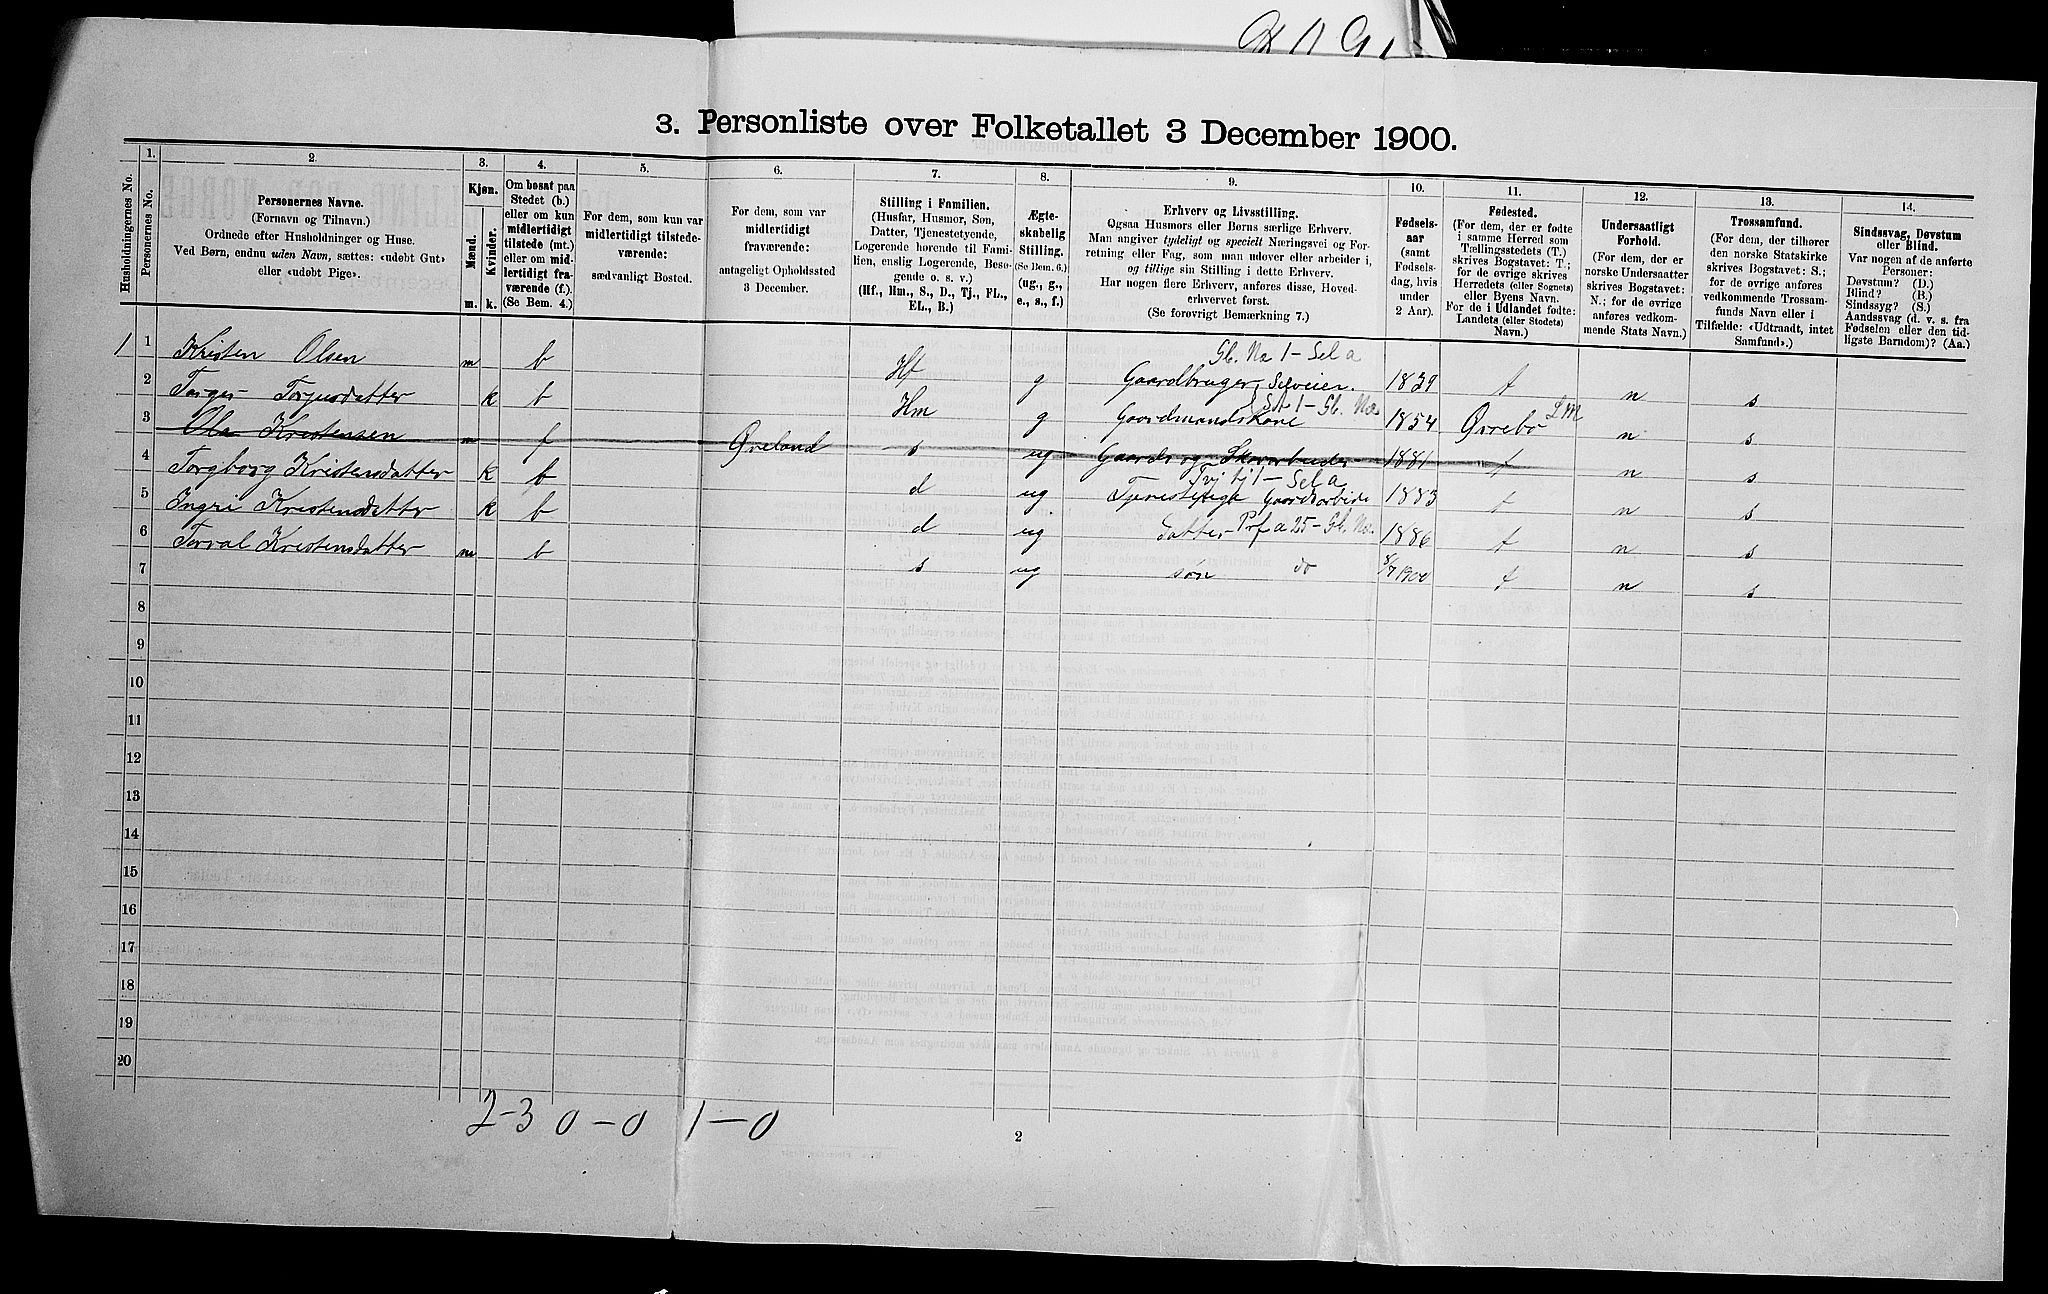 3. Personliste over Folketallet 3 December 1900.
1. 2. 3. 4. 5. 6. 7. 8. 9. 10. 11. 12. 13. 14.
Husholdningernes No.
Personernes No.
Personernes Navne.
(Fornavn og Tilnavn.)
Ordnede efter Husholdninger og Huse.
Ved Børn, endnu uden Navn, sættes: «udøbt Gut»
eller «udøbt Pige».
Kjøn.
Mænd.
Kvinder.
m. k.
Om bosat paa
Stedet (b.)
eller om kun
midlertidigt
tilstede (mt.)
eller om mid-
lertidigt fra-
værende (f.)
(Se Bem. 4.)
For dem, som kun var
midlertidigt tilstede-
værende:
sædvanligt Bosted.
For dem, som var
midlertidigt
fraværende:
antageligt Opholdssted
3 December.
Stilling i Familien.
(Husfar, Husmor, Søn,
Datter, Tjenestetyende,
Logerende hørende til Fami-
lien, enslig Logerende, Besø-
gende o. s. v.)
(Hf., Hm., S., D., Tj., FL.,
EL., B.)
Ægte-
skabelig
Stilling.
(Se Bem. 6.)
(ug., g.,
e., s., f.)
Erhverv og Livsstilling.
Ogsaa Husmors eller Børns særlige Erhverv.
Man angiver tydeligt og specielt Næringsvei og For-
retning eller Fag, som man udover eller arbeider i,
og tillige sin Stilling i dette Erhverv.
Har nogen flere Erhverv, anføres disse, Hoved-
erhvervet først.
(Se forøvrigt Bemærkning 7.)
Fødsels-
aar
(samt
Fødsels-
dag, hvis
under
2 Aar).
Fødested.
(For dem, der er fødte
i samme Herred som
Tællingsstedets (T.)
skrives Bogstavet: T.;
for de øvrige skrives
Herredets (eller Sognets)
eller Byens Navn.
For de i Udlandet fødte:
Landets (eller Stedets)
Navn.)
Undersaatligt
Forhold.
(For dem, der er
norske Undersaatter
skrives Bogstavet:
N.; for de øvrige
anføres vedkom-
mende Stats Navn.)
Trossamfund.
(For dem, der tilhører
den norske Statskirke
skrives Bogstavet: S.;
for de øvrige anføres
vedkommende Trossam-
funds Navn eller i
Tilfælde: «Udtraadt, intet
Samfund».)
Sindssvag, Døvstum
eller Blind.
Var nogen af de anførte
Personer:
Døvstum? (D.)
Blind? (B.)
Sindssyg? (S.)
Aandssvag (d. v. s. fra
Fødselen eller den tid-
ligste Barndom)? (Aa.)
Gb. Na 1 - Sel a
1 1 Kristen Olsen m b Hf g Gaardbruger, Selveier. 1839 t n s
2 Torger Torjusdatter k b Hm g Gaardmandskone 1854 Øvrebø L M n s
3 Ola Kristensen m f Øveland s ug Gaards og Skovarbeider 1881 t n s
4 Torgborg Kristensdatter k b d ug Tjenestepige Gaardsarbide 1883 t n s
5 Ingri Kristensdatter k b d ug Datter 1886 t n s
6 Torval Kristensdatter m b s ug søn do 8/7 1900 t n s
7
8
9
10
11
12
13
14
15
16
17
18
19
20
2-3 0-0 1-0
2